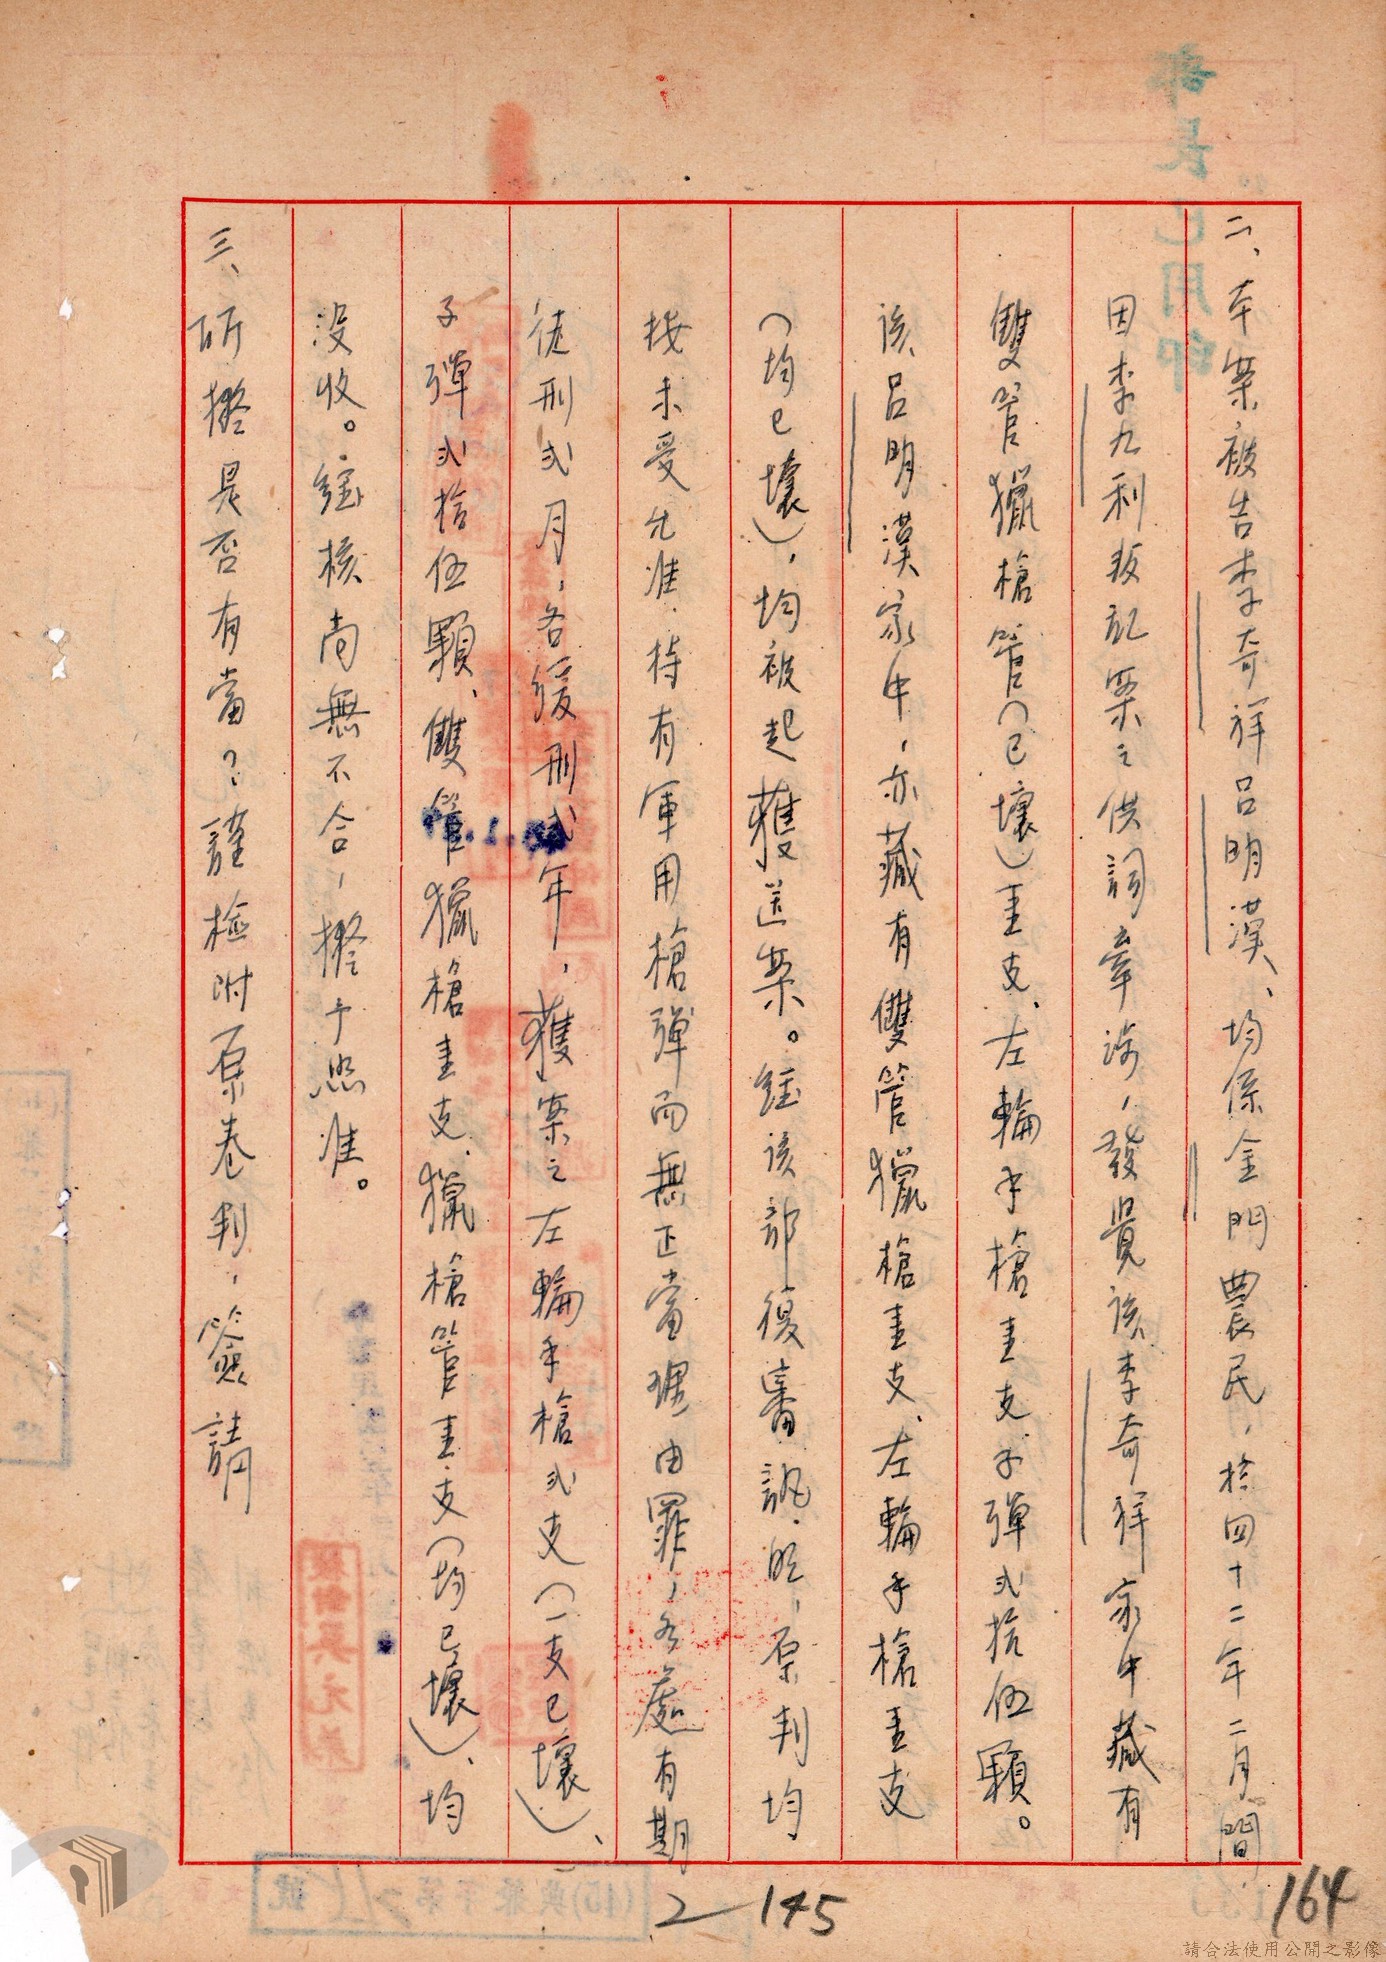 二、本案被告李奇祥呂明漢、均係金門農民，於四十二年二月間
因李九利叛亂案之供詞牽涉，發覺該李奇祥家中藏有
雙管獵槍管（已壞）壹支、左輪手槍壹支子彈弍拾伍顆。
該呂明漢家中，亦藏有雙管獵槍壹支、左輪手槍壹支
（均已壞），均被起獲送案。經該部復審訊明，原判均
按未受允准持有軍用槍彈而無正當理由罪，各處有期
徒刑弍月，各緩刑弍年，獲案之左輪手槍弍支（一支已壞）、
子彈弍拾伍顆、雙管獵槍壹支、獵槍管壹支（均已壞）、均
沒收。經核尚無不合，擬予照准。
三、所擬是否有當？謹檢附原卷判，簽請
部長已用印
2—145
164
請合法使用公開之影像